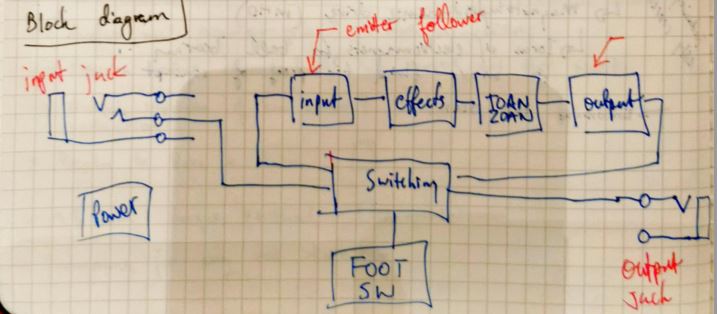 Block diagram
emitter follower
input jack
input
effects
IOAN
ZOAN
output
Switching
Power
FOOT
SW
output
jack